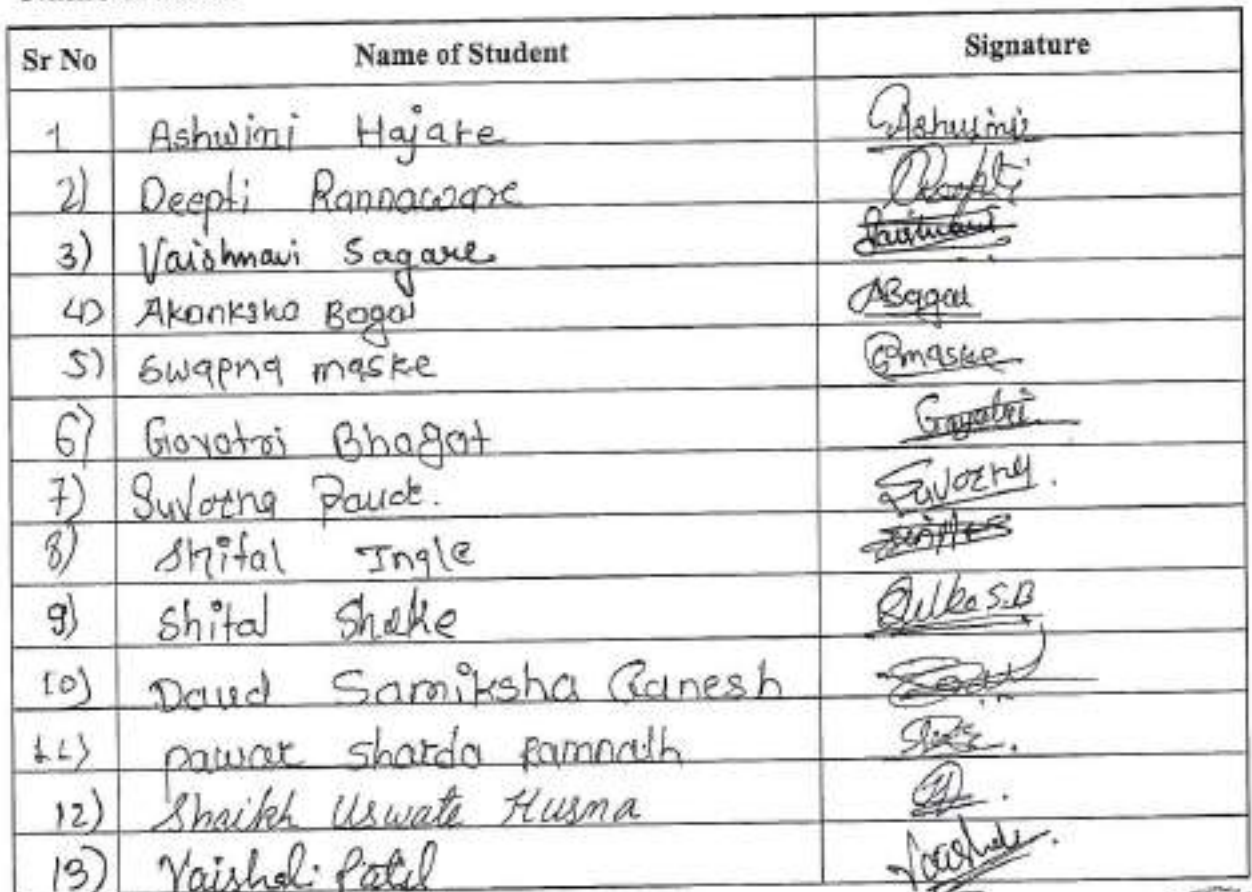 Sr No Name of Student Signature
1 Ashwini Hajare Ashwini
2) Deepti Rannaware Deepti
3) Vaishnavi Sagare Vaishnavi
4) Akanksha Bagal ABagal
5) Swapna maske Smaske
6) Gayatri Bhagat Gayatri
7) Suvarna Pauct. Suvarna.
8) Shital Ingle
9) Shital Shelke Shelke S.B
10) Daud Samiksha Ganesh
11) pawar sharda ramnath
12) Shaikh Uswata Husna
13) Vaishali Patil Vaishali